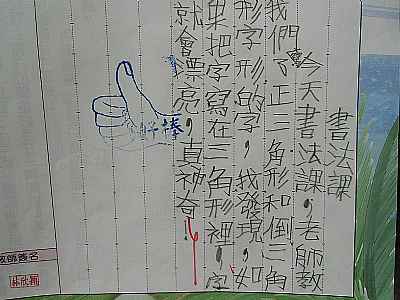 書法課
今天書法課，老師教
我們了正三角形和倒三角
形字形的字，我發現，如
果把字寫在三角形裡，字
就會漂亮，真神奇！
棒
教師簽名